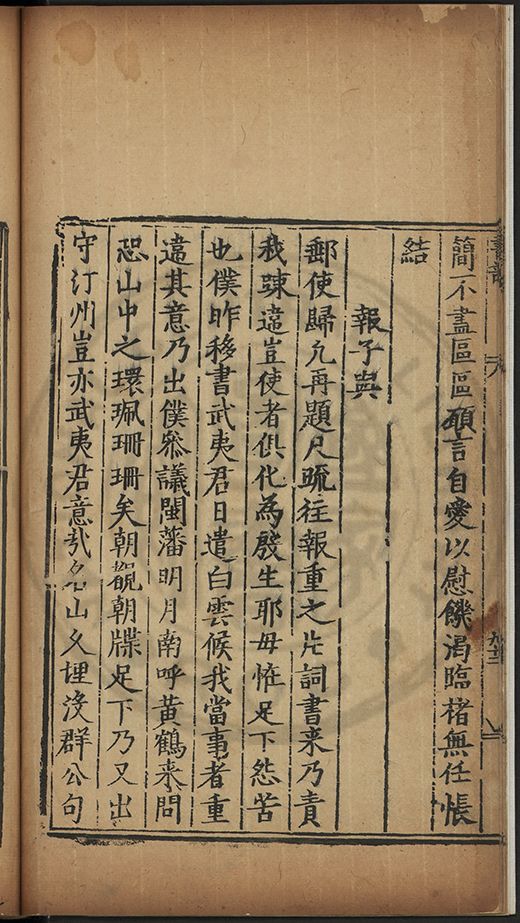 簡不盡區區願言自愛以慰饑渴臨楮無任悵
結
報子與
郵使歸凡再題尺疏往報重之片詞書来乃責
我踈遠豈使者俱化為殷生耶毋恠足下怨苦
也僕昨移書武夷君日遣白雲候我當事者重
違其意乃出僕叅議閩藩明月南呼黃鶴来問
恐山中之環珮珊珊矣朝覩朝牒足下乃又出
守汀州豈亦武夷君意㢤名山久埋沒群公句